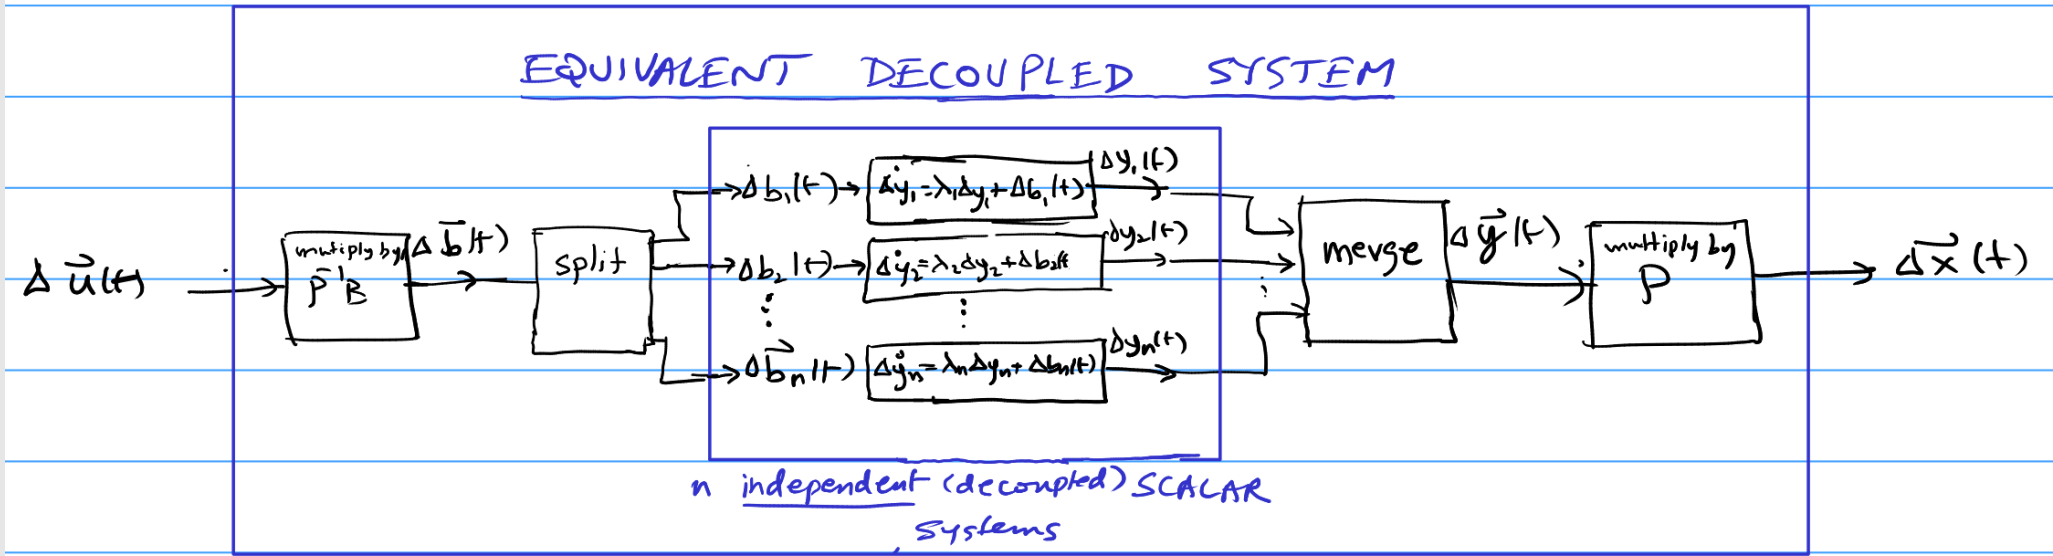 EQUIVALENT DECOUPLED SYSTEM
Δu⃗(t)
multiply by
P⁻¹B
Δb⃗(t)
split
Δb₁(t)
Δẏ₁=λ₁Δy₁+Δb₁(t)
Δy₁(t)
Δb₂(t)
Δẏ₂=λ₂Δy₂+Δb₂(t
Δy₂(t)
⋮
⋮
⋮
Δb⃗ₙ(t)
Δẏₙ=λₙΔyₙ+Δbₙ(t)
Δyₙ(t)
merge
Δy⃗(t)
multiply by
P
Δx⃗(t)
n independent (decoupled) SCALAR
systems